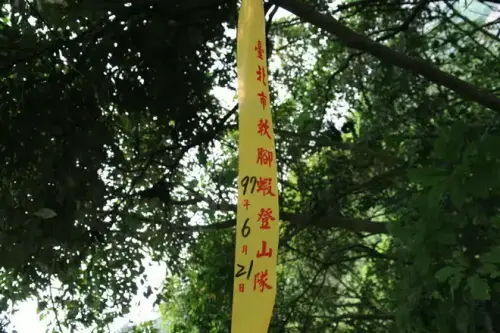 臺北市軟腳蝦登山隊
97年6月21日